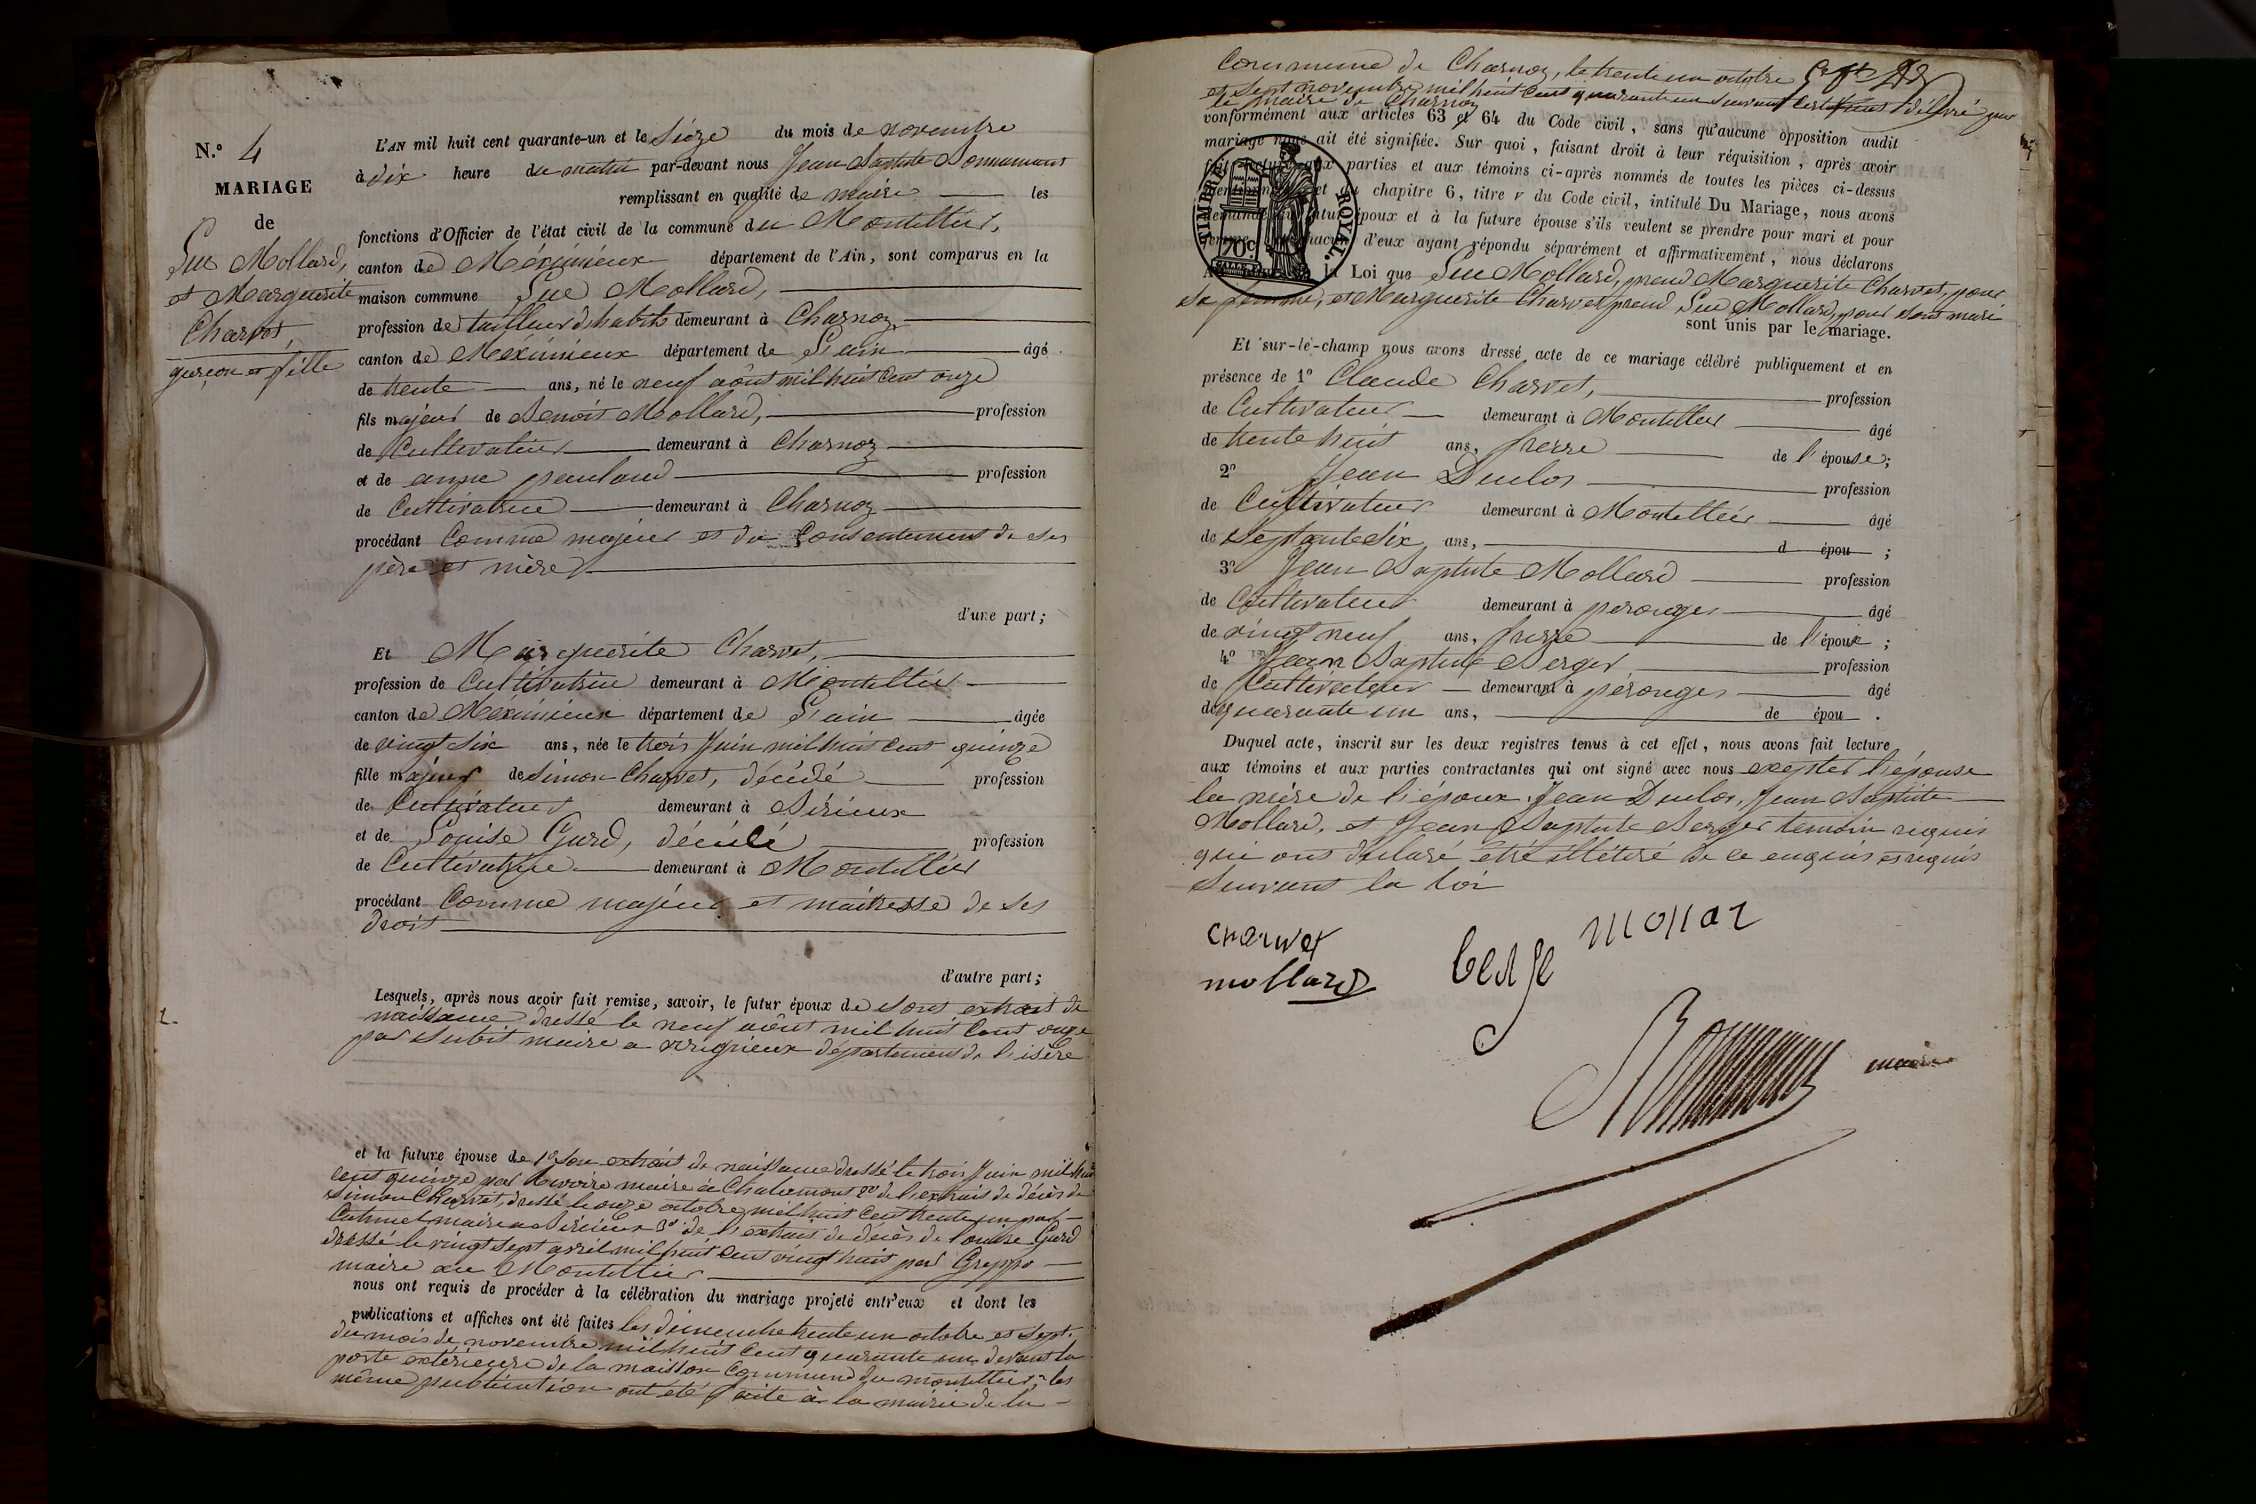 N.º 4
MARIAGE
de
Luc Mollard,
et Marguerite
Charvet,
garçon et fille
L'AN mil huit cent quarante-un et le sieze du mois de novembre
à dix heure du matin par-devant nous Jean Baptiste
remplissant en qualité de maire les
fonctions d'Officier de l'état civil de la commune du Montellier,
canton de Méximieux département de l'Ain, sont comparus en la
maison commune Luc Mollard,
profession de tailleur d'habits demeurant à Charnoz
canton de Méximieux département de L'ain âgé
de trente ans, né le neuf août mil huit cent onze
fils majeur de Benoit Mollard, profession
de Cultivateur demeurant à Charnoz
et de anne profession
de Cultivatrice demeurant à Charnoz
procédant Comme majeur et du Consentement de ses
père et mère
d'une part;
Et Marguerite Charvet,
profession de Cultivatrice demeurant à Montellier
canton de Meximieux département de L'ain âgée
de vingt six ans, née le trois Juin mil huit cent quinze
fille majeur de Simon Charvet, décédé profession
de Cultivateur demeurant à Birieux
et de Louise Gard, décédé profession
de Cultivatrice demeurant à Montellier
procédant Comme majeur et maitresse de ses
droit
d'autre part;
Lesquels, après nous avoir fait remise, savoir, le futur époux de sont extrait de
naissance dressé le neuf août mil huit Cent onze
par maire a départemens de l'isère
et la future épouse de 1º son extrait de naissance dressé le trois Juin mil huit
cent quinze par maire à Chalamont 2º de l'extrait de décès de
Simon Charvet, dressé le onze octobre mil huit Cent trente un par
maire a Birieux 3º de l'extrait de décès de Louise Gard
dressé le vingt sept avril mil huit cent vingt huit par Greppo
maire au Montellier
nous ont requis de procéder à la célébration du mariage projeté entr'eux et dont les
publications et affiches ont été faites les dimenche trente un octobre et sept
du mois de novembre mil huit Cent quarante un devant la
porte extérieure de la maison Commune du montellier, les
même publication ont été faite à la mairie de la
Commune de Charnoz, le trente un octobre
et sept novembre mil huit Cent quarante un suivant délivré par
le maire de Charnoz
conformément aux articles 63 et 64 du Code civil, sans qu'aucune opposition audit
mariage nous ait été signifiée. Sur quoi, faisant droit à leur réquisition, après avoir
fait lecture aux parties et aux témoins ci-après nommés de toutes les pièces ci-dessus
et du chapitre 6, titre v du Code civil, intitulé Du Mariage, nous avons
demandé au futur époux et à la future épouse s'ils veulent se prendre pour mari et pour
femme, chacun d'eux ayant répondu séparément et affirmativement, nous déclarons
la Loi que Luc Mollard, prend Marguerite Charvet, pour
sa femme, et Marguerite Charvet prend Luc Mollard, pour sont mari
sont unis par le mariage.
TIMBRE ROYAL.
70 c.
Et sur-le-champ nous avons dressé acte de ce mariage célébré publiquement et en
présence de 1º Claude Charvet, profession
de Cultivateur demeurant à Montellier âgé
de trente huit ans, frerre de l'épouse;
2º Jean Duclos profession
de Cultivateur demeurant à Montellier âgé
de septante six ans, d épou ;
3º Jean Baptiste Mollard profession
de Cultivateur demeurant à perouges âgé
de vingt neuf ans, frerre de l'époux ;
4º Jean Baptiste Berger profession
de Cultivateur demeurant à pérouges âgé
de quarante un ans, de épou .
Duquel acte, inscrit sur les deux registres tenus à cet effet, nous avons fait lecture
aux témoins et aux parties contractantes qui ont signé avec nous exeptez l'épouse
la mère de l'époux. Jean Duclos, Jean Baptiste
Mollard, et Jean Baptiste Berger temoin requis
qui ont déclaré être illétéré de ce enquis et requis
suivant la loi
charvet
mollard
mollar
berge
maire